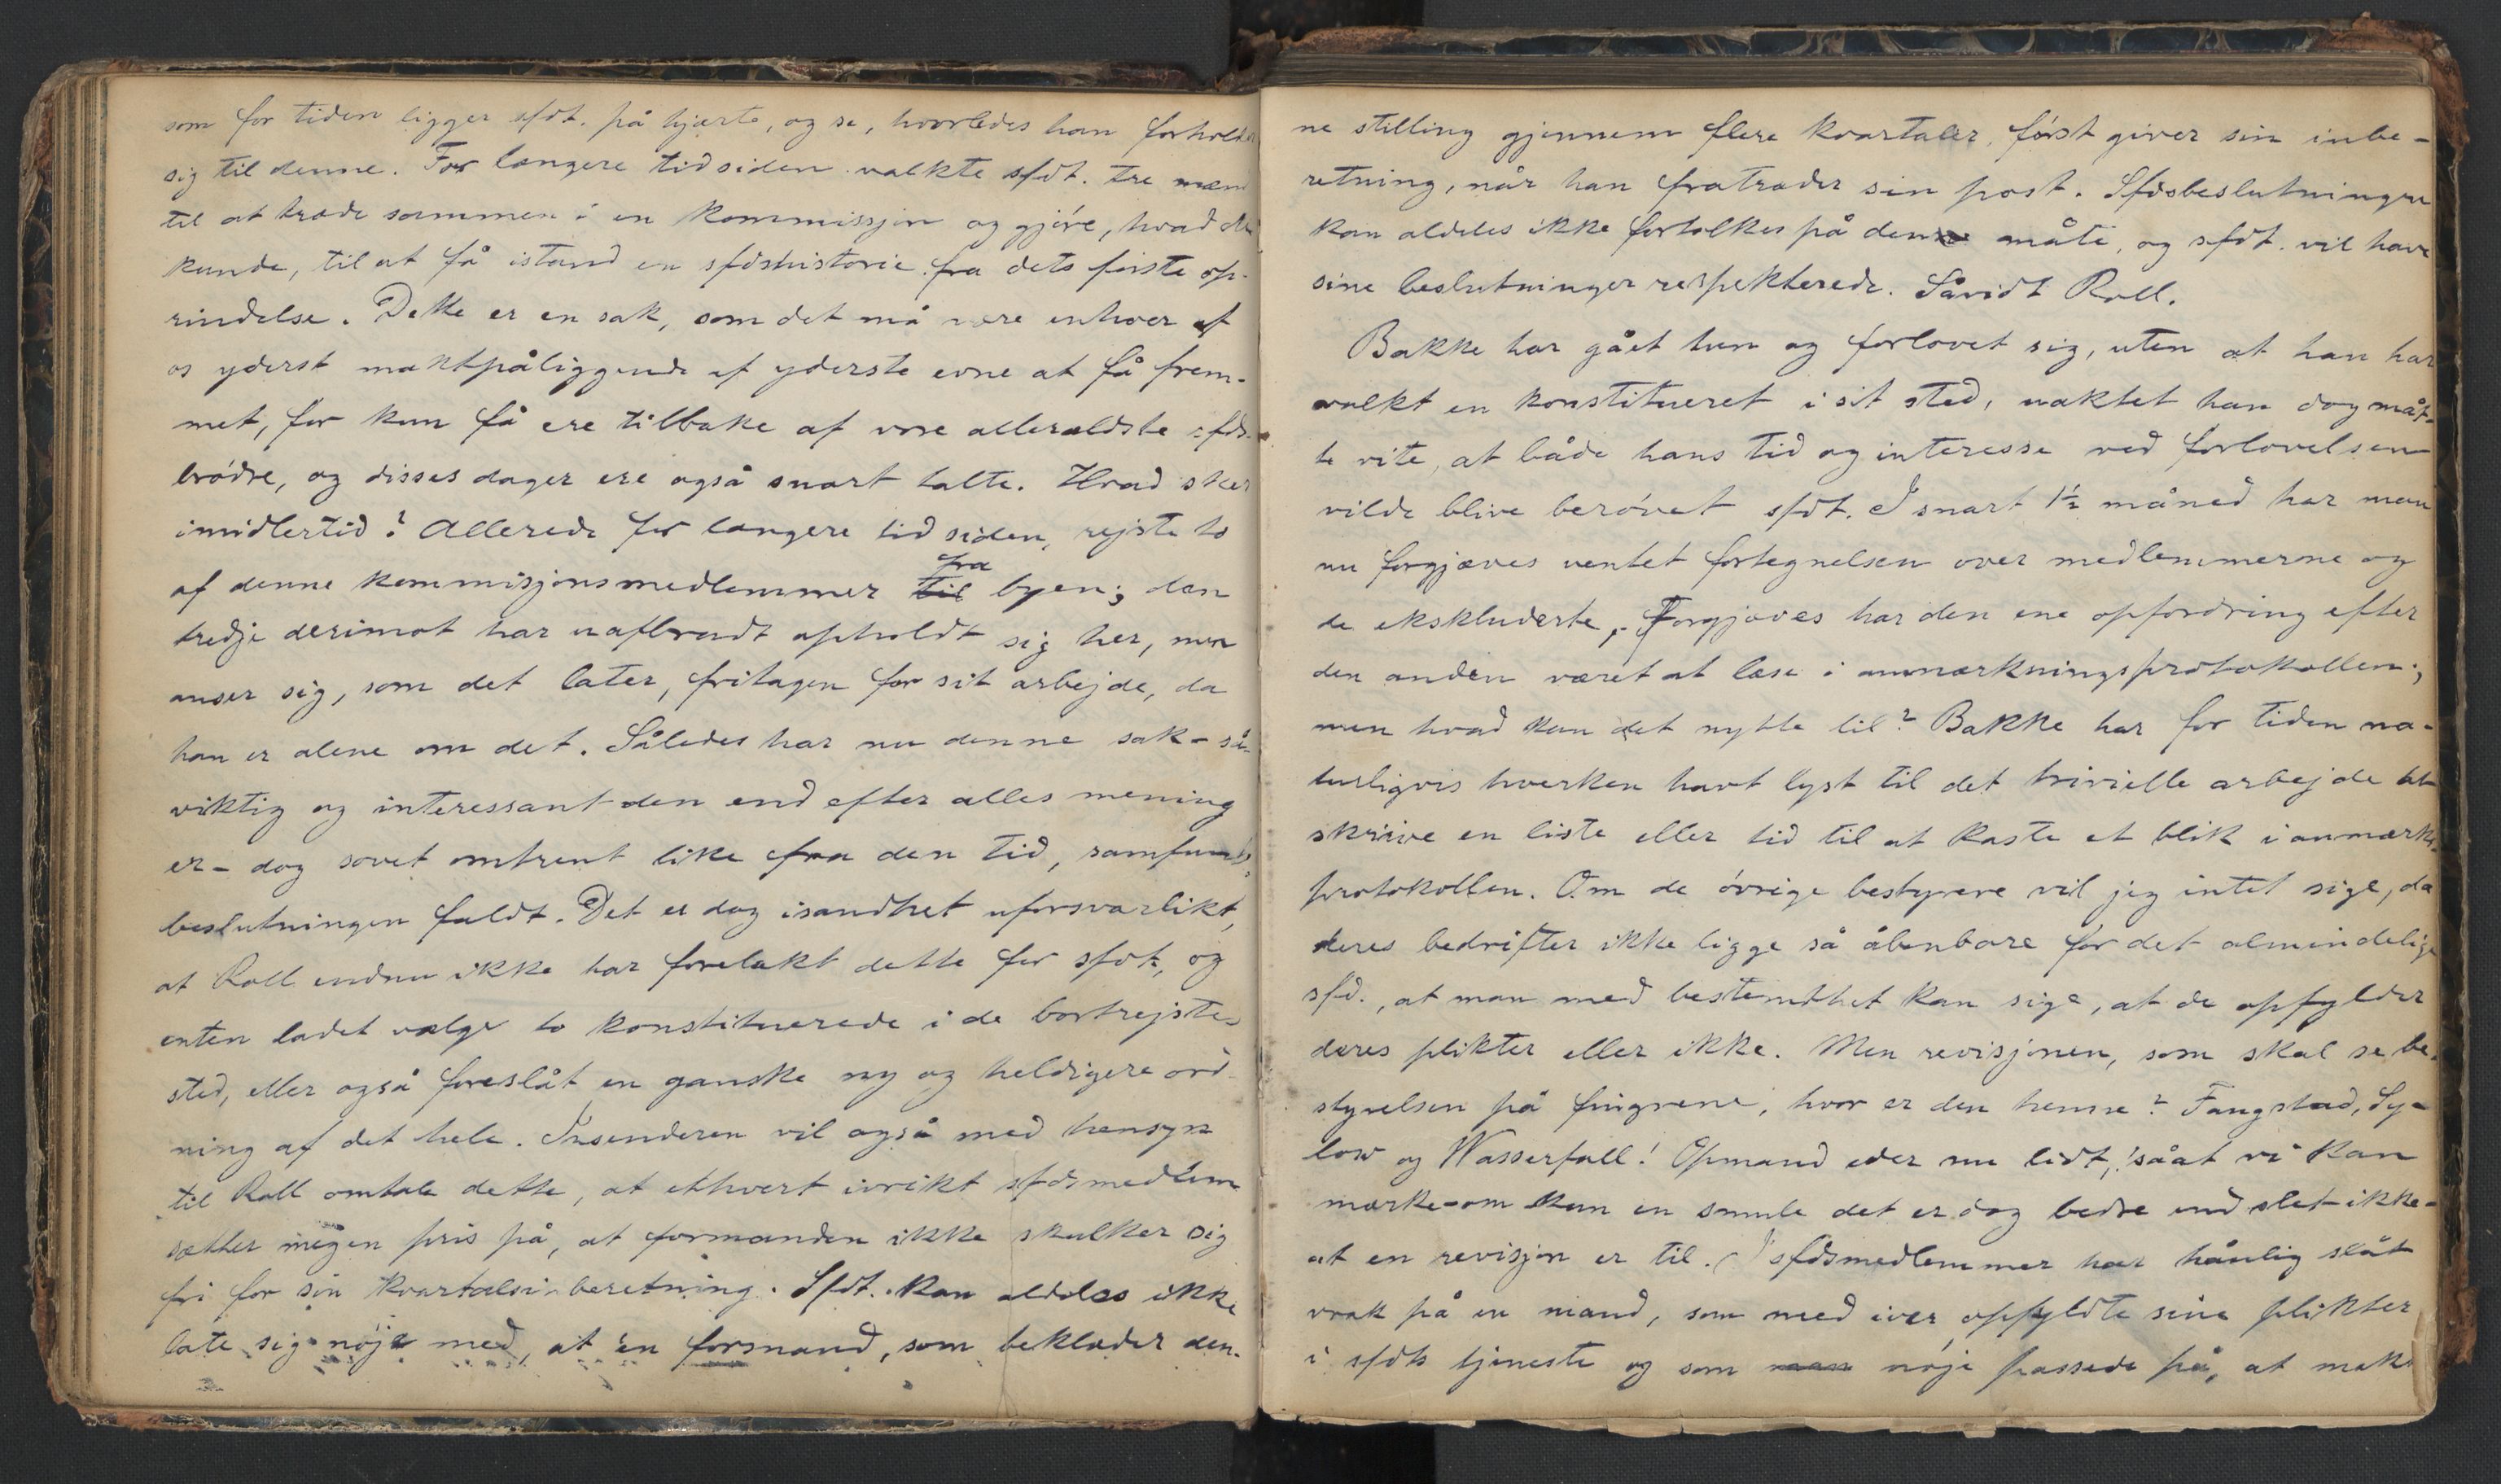 som for tiden ligger sfdt. på hjærte, og se, hvorledes han forholder
sig til denne. For længere tid siden valkte sfdt. tre mænd
til at træde sammen i en kommissjon og gjöre, hvad de
kunde, til at få istand en sfdshistorie fra dets förste op-
rindelse. Dette er en sak, som det må være enhver af
os yderst maktpåliggende af yderste evne at få frem-
met, for kun få ere tilbake af vore allerældste sfds-
brödre, og disses dager ere også snart talte. Hvad sker
imidlertid? Allerede for længere tid siden, rejste to
af denne kommisjons medlemmer til fra byen; den
tredje derimot har uafbrudt opholdt sig her, men
anser sig, som det later, fritagen for sit arbejde, da
han er alene om det. Således har nu denne sak - så
viktig og interessant den end efter alles mening
er - dog sovet omtrent like fra den tid, samfunds-
beslutningen faldt. Det er dog isandhet uforsvarlikt,
at Roll endnu ikke har forelakt dette for sfdt, og
enten ladet vælge to konstituerede i de bortrejstes
sted, eller også foreslåt en ganske ny og heldigere ord-
ning af det hele. Insenderen vil også med hensyn
til Roll omtale dette, at ethvert ivrikt sfdsmedlem
sætter megen pris på, at formanden ikke skulker sig
fri for sin kvartalsinberetning. Sfdt. kan aldeles ikke
late sig nöje med, at en formand, som beklæder den-
ne stilling gjennem flere kvartaler, först giver sin inbe-
retning, når han fratræder sin post. Sfdsbeslutningen
kan aldeles ikke fortolkes på denne måte, og sfdt. vil have
sine beslutninger respekterede. Såvidt Roll.
Bakke har gået hen og forlovet sig, uten at han har
valkt en konstitueret i sit sted, uaktet han dog måt-
te vite, at både hans tid og interesse ved forlovelsen
vilde blive berövet sfdt. I snart 1½ måned har man
nu forgjæves ventet fortegnelsen over medlemmerne og
de ekskluderte, Forgjæves har den ene opfordring efter
den anden været at læse i anmærkningsprotokollen;
men hvad kan det nytte til? Bakke har for tiden na-
turligvis hverken havt lyst til det trivielle arbejde at
skrive en liste eller tid til at kaste et blik i anmærkn.
protokollen. Om de övrige bestyrere vil jeg intet sige, da
deres bedrifter ikke ligge så åbenbare for det almindelige
sfd., at man med bestemthet kan sige, at de opfylder
deres plikter eller ikke. Men revisjonen, som skal se be-
styrelsen på fingrene, hvor er den henne? Fangstad, Sy-
low og Wasserfall! Opmand eder nu lidt, såat vi kan
mærke - om kun en smule det er dog bedre end slet ikke -
at en revisjon er til. I sfdsmedlemmer har hånlig slåt
vrak på en mand, som med iver opfyldte sine plikter
i sfdts tjeneste og som man nöje passede på, at makt